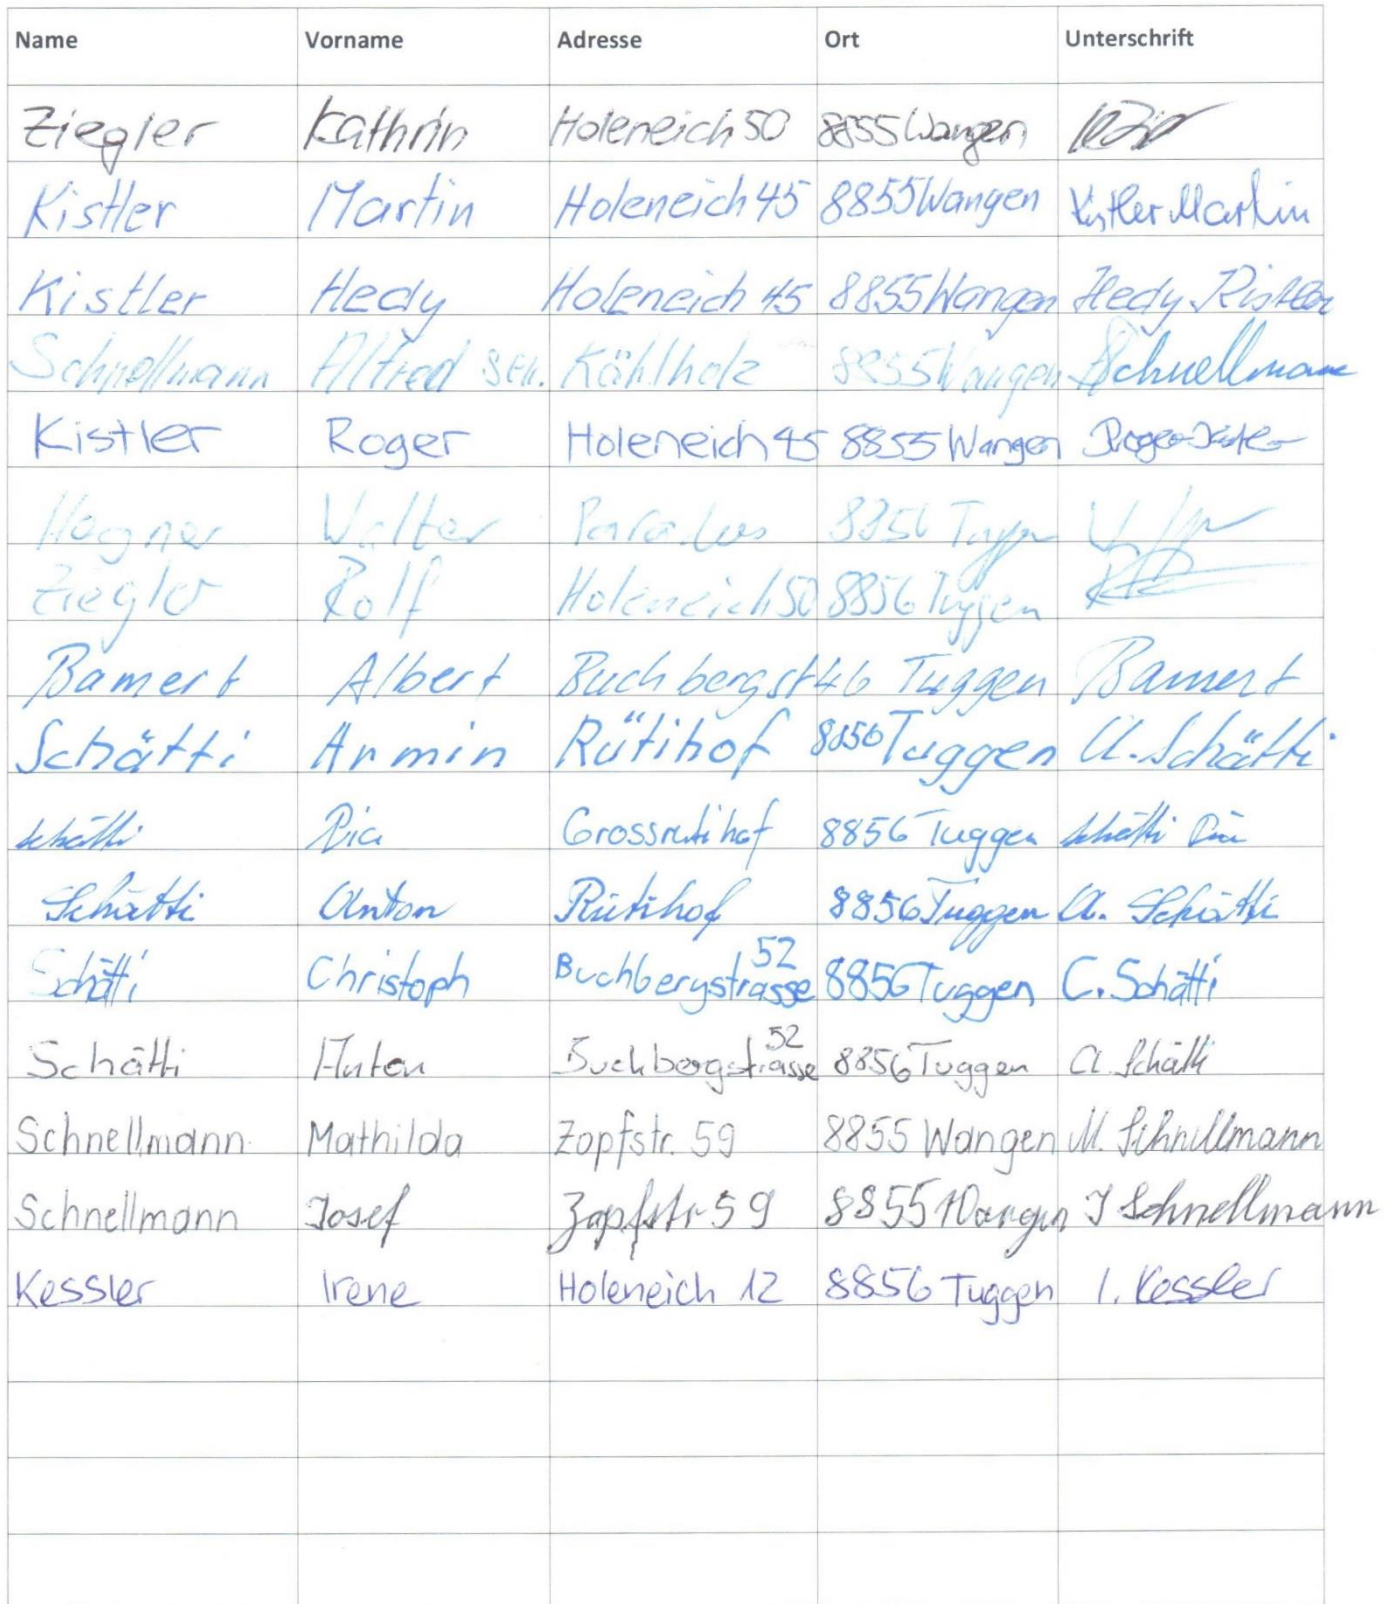 Name Vorname Adresse Ort Unterschrift
Ziegler Kathrin Holeneich 50 8855 Wangen
Kistler Martin Holeneich 45 8855 Wangen Kistler Martin
Kistler Hedy Holeneich 45 8855 Wangen Hedy Kistler
Schnellmann Alfred sen. Kählholz 8855 Wangen A Schnellmann
Kistler Roger Holeneich 45 8855 Wangen Roger Kistler
Walter 8856 Tuggen
Ziegler Rolf Holeneich 50 8856 Tuggen
Bamert Albert Buchbergst 46 Tuggen Bamert
Schätti Armin Rütihof 8856 Tuggen A. Schätti
Schätti Pia Grossrütihof 8856 Tuggen Schätti Pia
Schätti Anton Rütihof 8856 Tuggen A. Schätti
Schätti Christoph Buchbergstrasse 52 8856 Tuggen C. Schätti
Schätti Anton Buchbergstrasse 52 8856 Tuggen A. Schätti
Schnellmann Mathilda Zopfstr. 59 8855 Wangen M. Schnellmann
Schnellmann Josef Zopfstr 59 8855 Wangen J Schnellmann
Kessler Irene Holeneich 12 8856 Tuggen I. Kessler